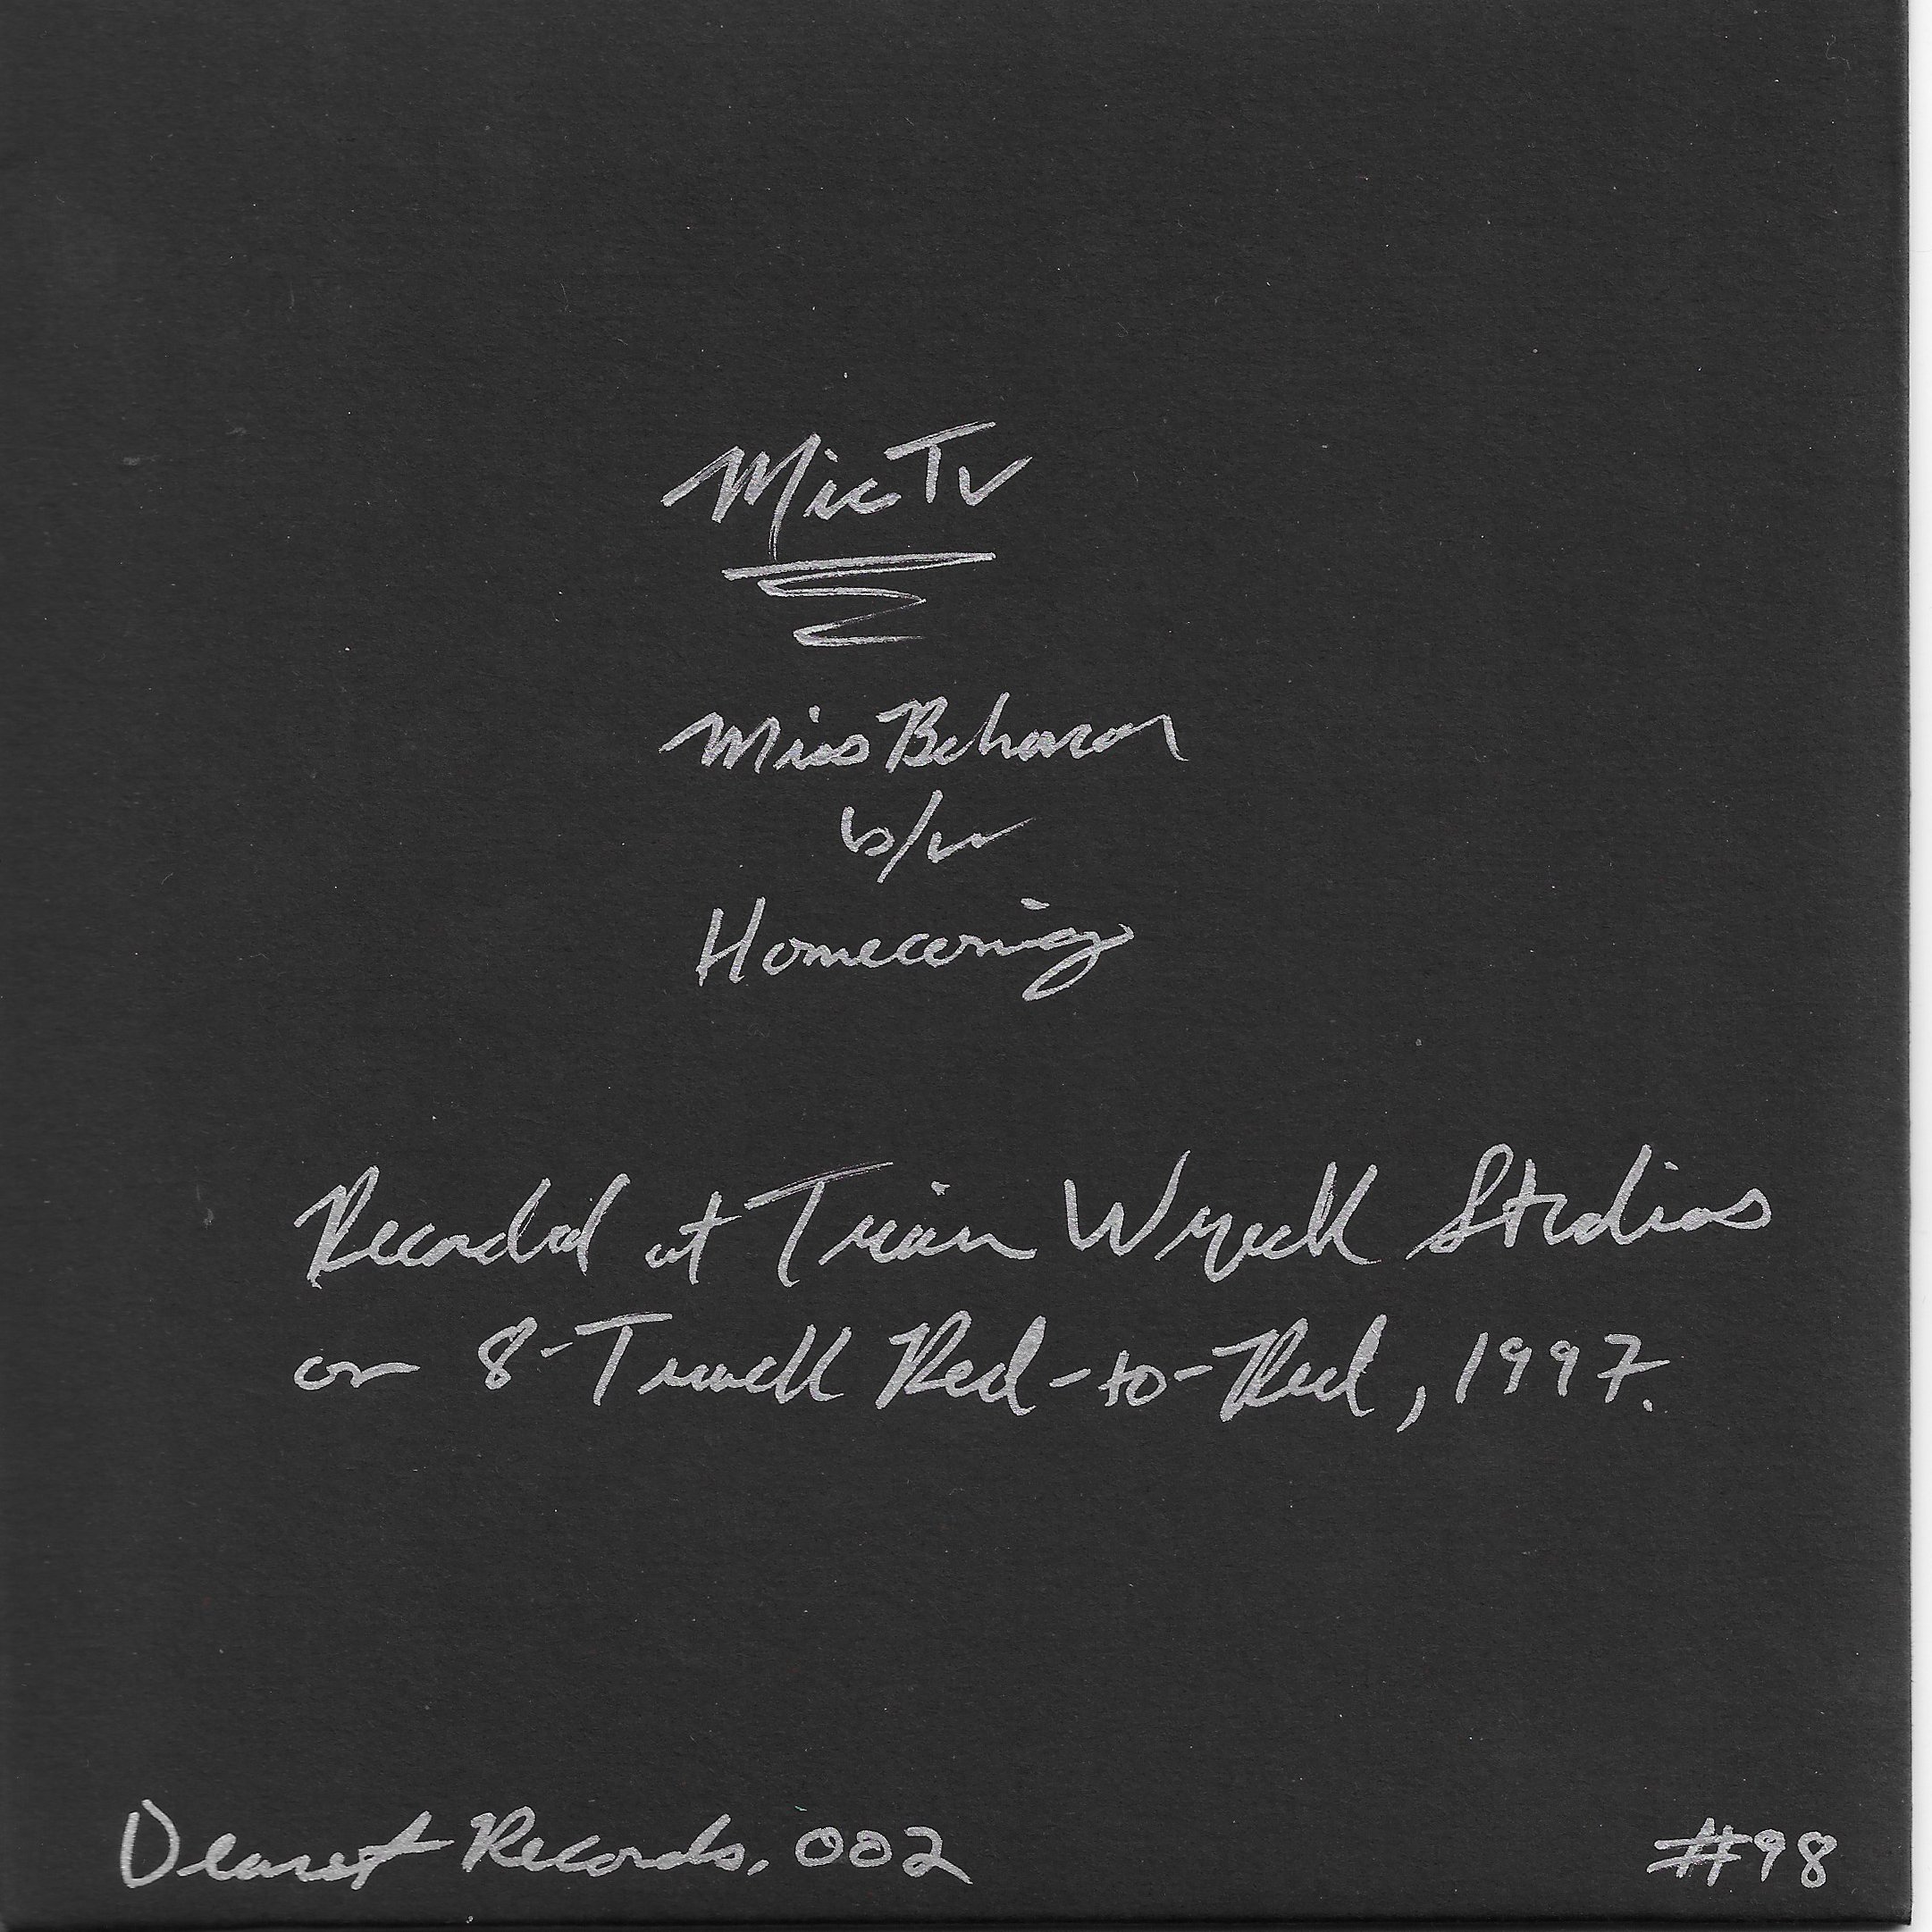 Mic TV
Miss Behavor
b/w
Homecoming
Recorded at Train Wreck Studios
on 8-Track Reel-to-Reel, 1997.
Dearest Records, 002
#98